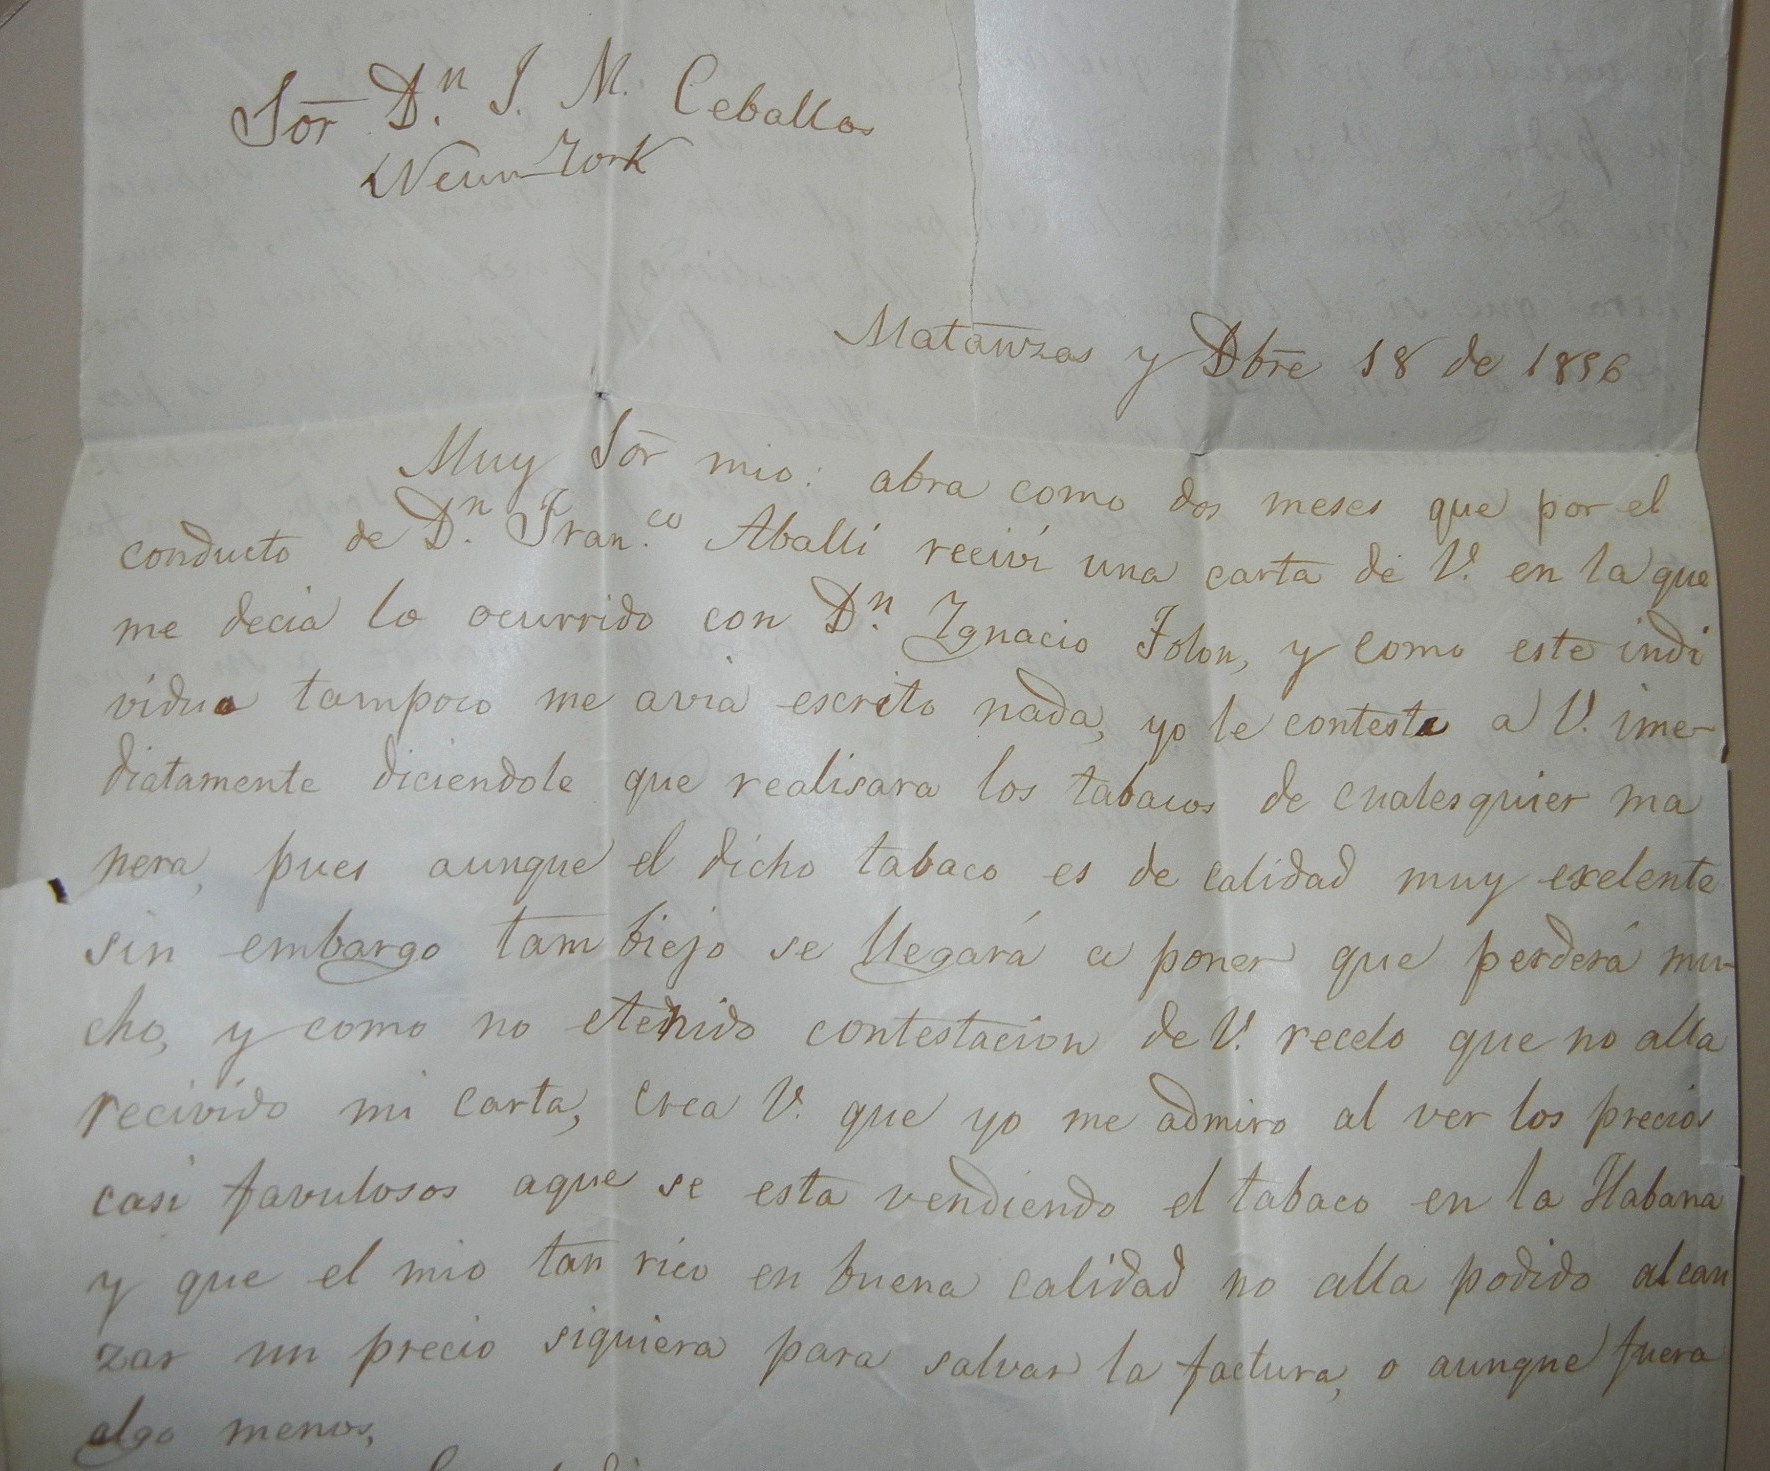 Sor Dn. J. M. Ceballos
Neun York
Matanzas y Dbre 18 de 1856
Muy Sor mio: abra como dos meses que por el
conducto de Dn. Fran.co Aballí reciví una carta de V. en la que
me decia lo ocurrido con Dn. Ygnacio Folon, y como este indi
viduo tampoco me avia escrito nada, yo le conteste a V. ime-
diatamente diciendole que realisara los tabacos de cualesquier ma
nera, pues aunque el dicho tabaco es de calidad muy exelente
sin embargo tam biejo se llegará a poner que perderá mu-
cho, y como no etenido contestacion de V. recelo que no alla
recivido mi carta, crea V. que yo me admiro al ver los precios
casi favulosos aque se esta vendiendo el tabaco en la Habana
y que el mio tan rico en buena calidad no alla podido alcan
zar un precio siquiera para salvar la factura, o aunque fuera
algo menos,